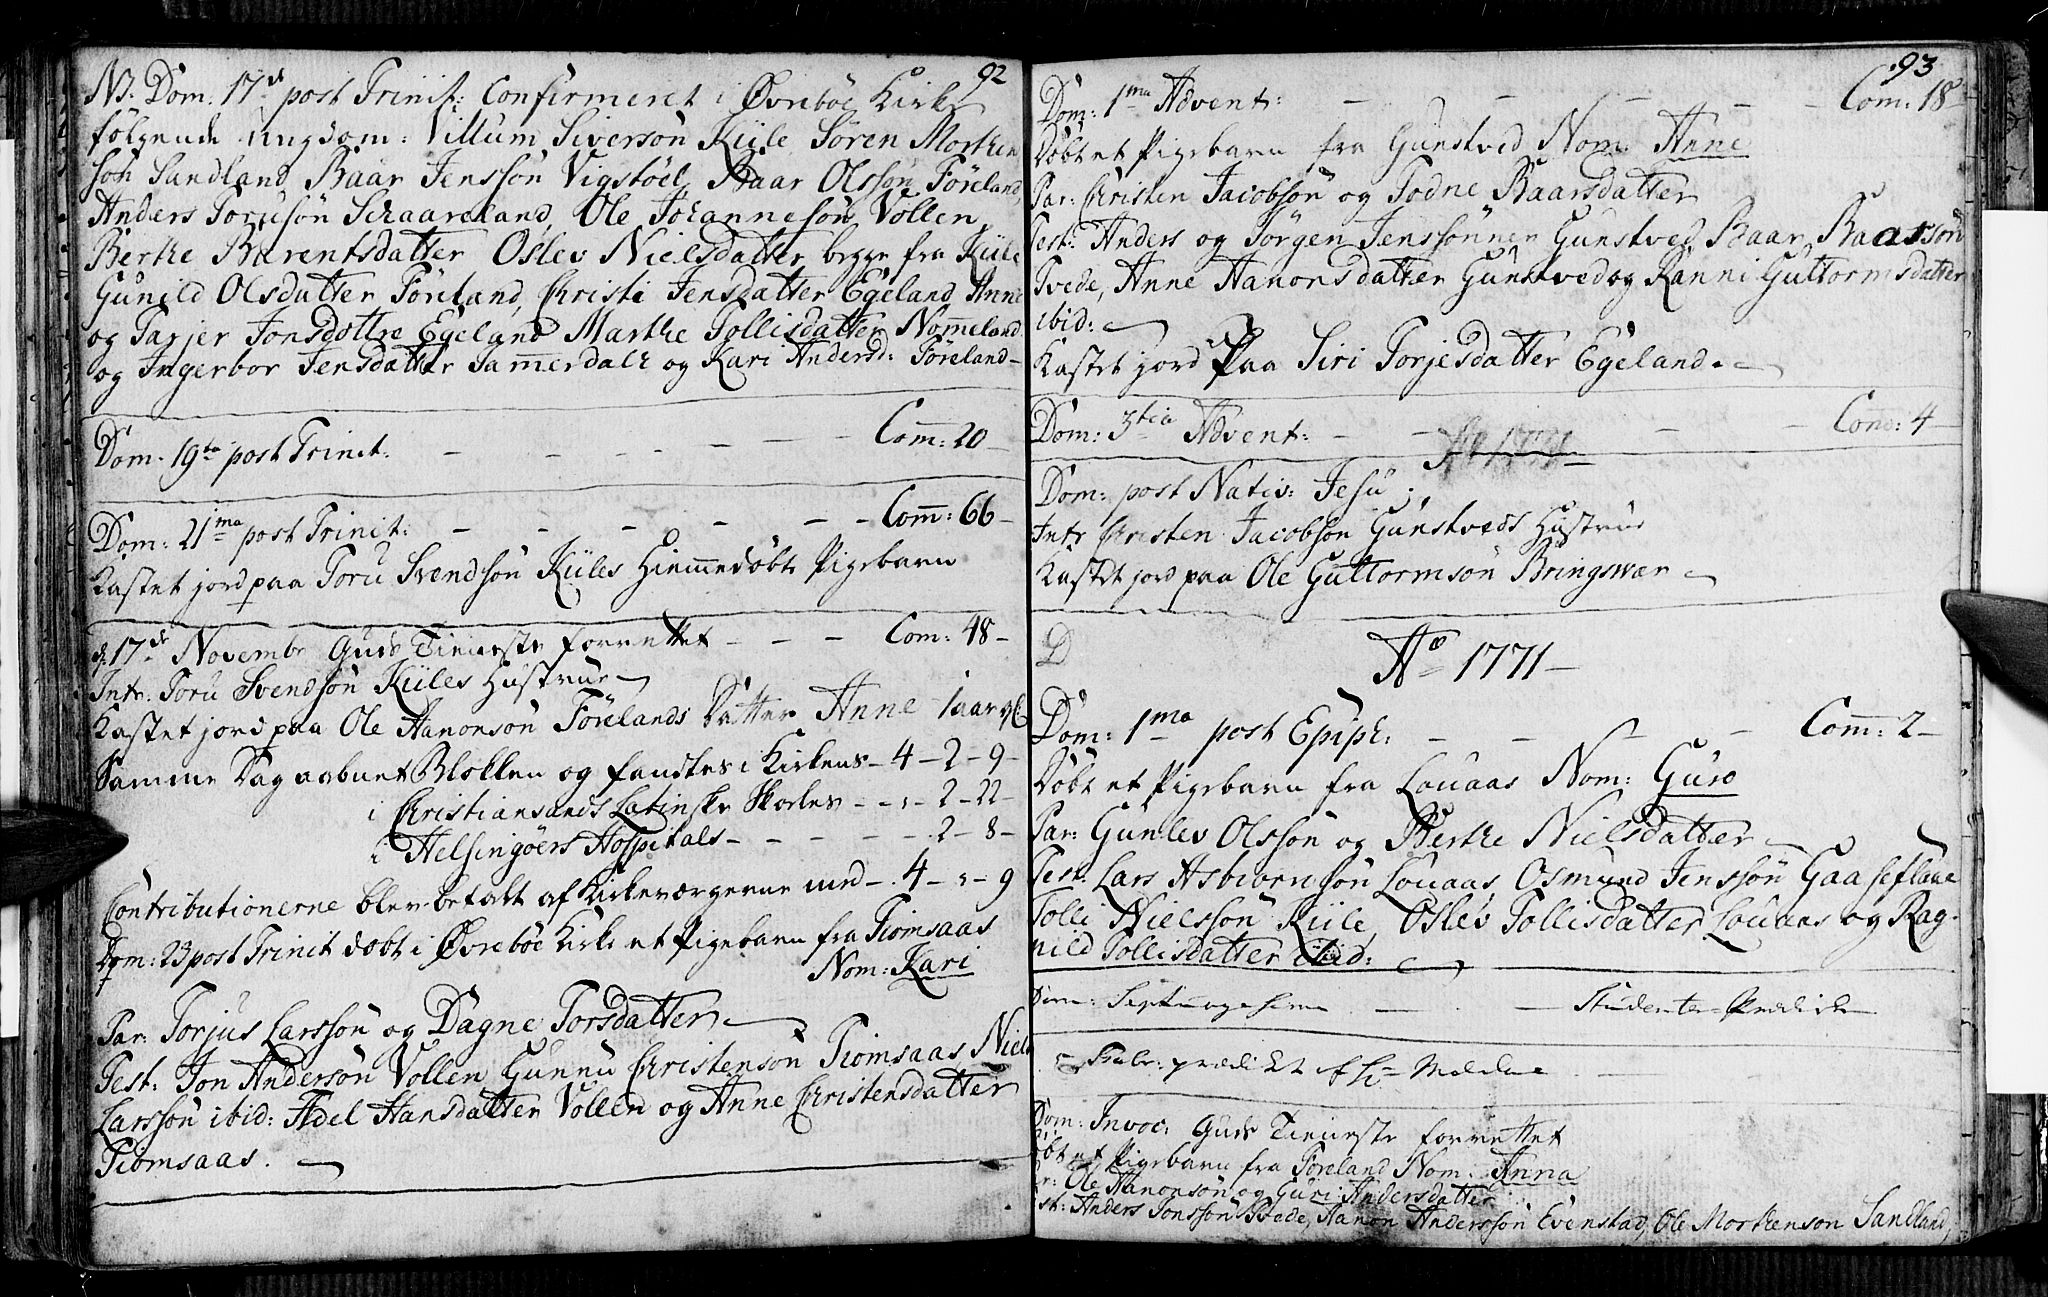 92
NB. Dom: 17de post Trinit: Confirmeret i Øvrebøe Kirke
følgende ungdom: Villum Siversøn Kiile Søren Morthen
søn Sandland Baar Jenssøn Vigstøel, Baar Olssøn Føreland,
Anders Torjusøn Schaareland, Ole Johannesøn Vollen
Berthe Barentsdatter Oslev Nielsdatter begge fra Kiile
Gunild Olsdatter Føreland, Christi Jensdatter Egeland, Anne
og Tarjer Jonsdøttre Egeland Marthe Tollisdatter Nom̄eland
og Ingerbor Jensdatter Sam̄erdalh og Kari Andersd: Føreland-
Dom. 19te post Trinit: - - - - Com̄: 20
Dom: 21ma post Trinit: - - - - - - Com̄: 66-
Kastet jord paa Toru Svendsøn Kiiles Hiem̄edøbte Pigebarn
d. 17de Novembr Guds Tieneste forrettet - - - Com: 48-
Intr: Toru Svendsøn Kiiles Hustrue
Kastet jord paa Ole Aanonsøn Førelands Datter Anne 1 aar gl:
Samme Dag aabnet Blokken og fandtes i Kirkens - 4 - 2 - 9 -
i Christiansands Latinske Skoles - - " - 2 - 22 -
i Helsingøers Hospitals - - - - - 2 - 8 -
Contributionerne blev betalt af Kirkeværgerne med - 4 - " - 9
Dom: 23 post Trinit døbt i Øvrebøe Kirke et Pigebarn fra Tiomsaas
Nom: Kari
Par: Torjus Larssøn og Dagne Torsdatter
Test: Jon Andersøn Vollen Gunnu Christensøn Tiomsaas Niels
Larssøn ibid: Adel Hansdatter Vollen og Anne Christensdatter
Tiomsaas.
93
Dom: 1ma Advent: - - - - - Com: 18
Døbt et Pigebarn fra Gunstved Nom: Anne
Par: Christen Jacobsøn og Todne Baarsdatter
Test: Anders og Jørgen Jenssønner Gunstved Baar Baarssøn
Tvede, Anne Aanonsdatter Gunstved og Ranni Guttormsdatter
ibid:
Kastet jord Paa Siri Torjesdatter Egeland.
Dom: 3tia Advent: - - - - Com̄: 4
Ao 1771
Dom: post Nativ: Jesu:
Intr Christen Jacobsøn Gunstveds Hustrue
Kastet jord paa Ole Guttormsøn Bringsvær
D
Ao 1771-
Dom: 1ma post Epiph: - - - - Com̄: 2-
Døbt et Pigebarn fra Louaas Nom: Guro
Par: Gunlev Olssøn og Berthe Nielsdatter
Test: Lars Asbiørnsøn Louaas Osmund Jenssøn Gaaseflaae
Tolli Nielssøn Kiile, Oslev Tollisdatter Louaas og Rag-
nild Tollisdatter ibid:
Dom: Septuagesima - - - Studenter Prædiken
prædiket af
Dom: Invoc: Guds Tieneste forrettet
Døbt et Pigebarn fra Føreland Nom: Anna
Ole Aanonsøn og Guri Andersdatter
st: Anders Jonssøn Stede, Aanon Anderssøn Evenstad, Ole Morthenson Sandland,